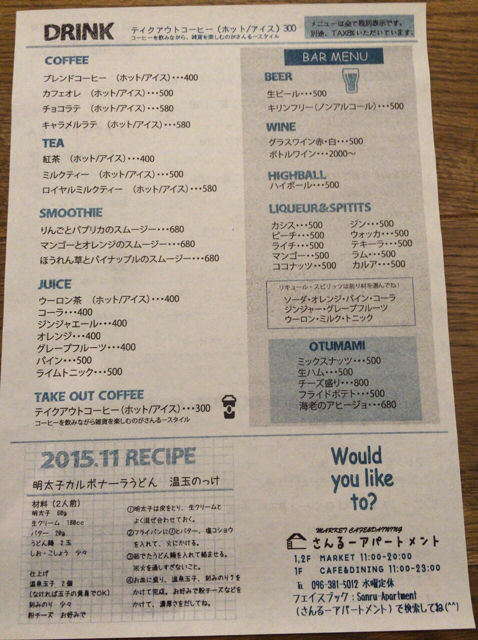 DRINK
テイクアウトコーヒー(ホット/アイス)300
コーヒーを飲みながら、雑貨を楽しむのがさんるースタイル
メニューは全て税別表示です。
別途、TAX8%いただいています。
COFFEE
ブレンドコーヒー (ホット/アイス)・・・400
カフェオレ (ホット/アイス)・・・500
チョコラテ (ホット/アイス)・・・580
キャラメルラテ (ホット/アイス)・・・580
TEA
紅茶 (ホット/アイス)・・・400
ミルクティー (ホット/アイス)・・・500
ロイヤルミルクティー (ホット/アイス)・・・580
SMOOTHIE
りんごとパプリカのスムージー・・・680
マンゴーとオレンジのスムージー・・・680
ほうれん草とパイナップルのスムージー・・・680
JUICE
ウーロン茶 (ホット/アイス)・・・400
コーラ・・・400
ジンジャエール・・・400
オレンジ・・・400
グレープフルーツ・・・400
パイン・・・500
ライムトニック・・・500
TAKE OUT COFFEE
テイクアウトコーヒー(ホット/アイス)・・・300
コーヒーを飲みながら雑貨を楽しむのがさんるースタイル
BAR MENU
BEER
生ビール・・・500
キリンフリー(ノンアルコール)・・・500
WINE
グラスワイン赤・白・・・500
ボトルワイン・・・2000〜
HIGHBALL
ハイボール・・・500
LIQUEUR&SPITITS
カシス・・・500 ジン・・・500
ピーチ・・・500 ウォッカ・・・500
ライチ・・・500 テキーラ・・・500
マンゴー・・500 ラム・・・500
ココナッツ・・500 カルア・・・500
リキュール・スピリッツは割り材を選んでね!
ソーダ・オレンジ・パイン・コーラ
ジンジャー・グレープフルーツ
ウーロン・ミルク・トニック
OTUMAMI
ミックスナッツ・・・500
生ハム・・・500
チーズ盛り・・・800
フライドポテト・・・500
海老のアヒージョ・・・680
2015.11 RECIPE
明太子カルボナーラうどん 温玉のっけ
材料(2人前)
明太子 60g
生クリーム 100cc
バター 20g
うどん麺 2玉
しお・こしょう 少々
仕上げ
温泉玉子 2個
(なければ玉子の黄身でOK)
刻みのり 少々
粉チーズ お好みで
①明太子は皮をとり、生クリームと
よく混ぜ合わせておく。
②フライパンに①とバター、塩コショウ
を入れて、火にかける。
③茹でたうどん麺を入れて絡ませる。
※火を通しすぎないこと。
④お皿に盛り、温泉玉子、刻みのりを
かけて完成。お好みで粉チーズなどを
かけて、濃厚さをだしてね。
Would
you like
to?
MARKET CAFE&DINING
さんるーアパートメント
1,2F MARKET 11:00-20:00
1F CAFE&DINING 11:00-23:00
℡ 096-381-5012 水曜定休
フェイスブック:Sanru-Apartment
(さんるーアパートメント)で検索してね(^^)